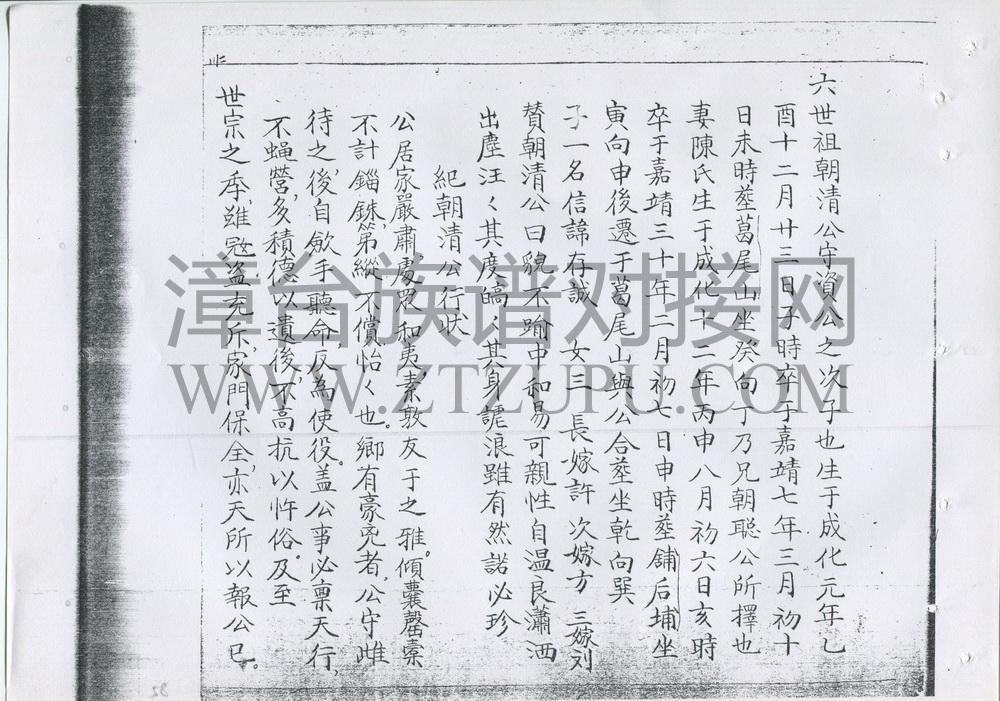 六世祖朝清公守資公之次子也生于成化元年乙
酉十二月廿三日子時卒于嘉靖七年三月初十
日未時塟葛尾山坐癸向丁乃兄朝聰公所擇也
妻陳氏生于成化十二年丙申八月初六日亥時
卒于嘉靖三十年二月初七日申時塟舖后埔坐
寅向申後遷于葛尾山與公合塟坐乾向巽
子一名信諱存誠 女三 長嫁許 次嫁方 三嫁刘
贊朝清公曰貌不踰中和易可親性自温良瀟洒
出塵汪く其度皜く其身謔浪雖有然諾必珍
紀朝清公行状
公居家嚴肅,處眾和夷素敦友于之雅。傾囊罄橐
不計錙銖,第縱不償怡く也。鄉有豪兇者,公守雌
待之,後自斂手聽命反為使役。盖公事必禀天行,
不蝇營,多積德以遺後,不高抗以忤俗。及至
世宗之季,雖寇盗充斥,家門保全,亦天所以報公已。
漳台族谱对接网
WWW.ZTZUPU.COM